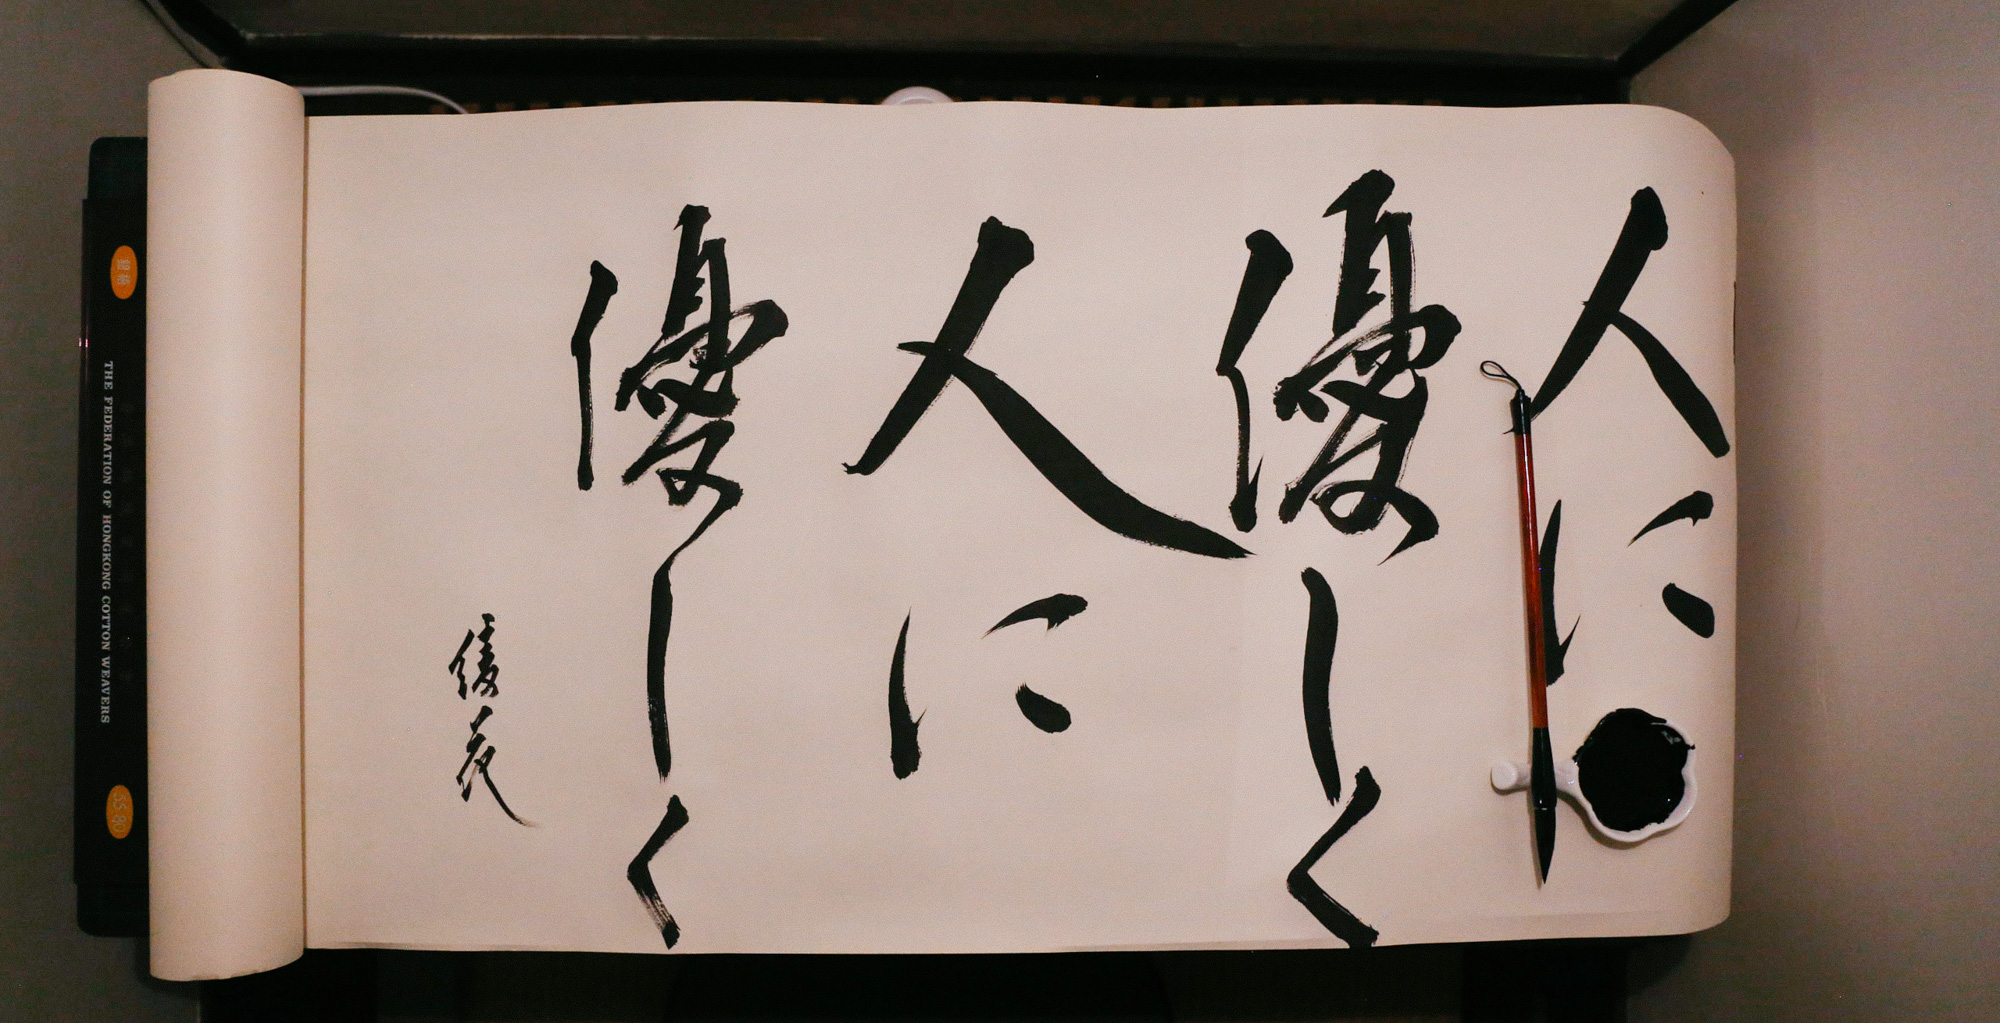 人に
優しく
人に
優しく
THE FEDERATION OF HONGKONG COTTON WEAVERS
55-80